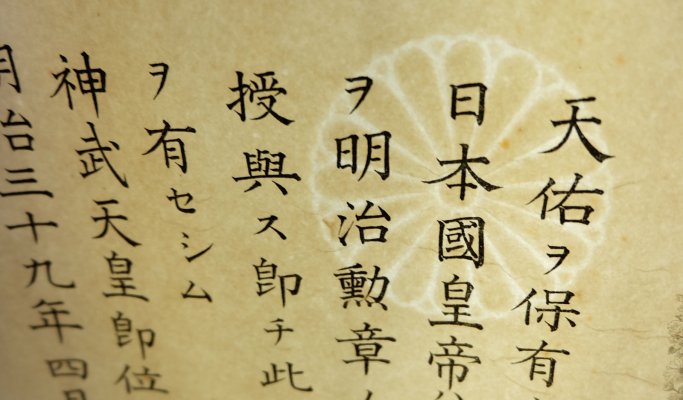 天佑ヲ保有
日本國皇帝
ヲ明治勲章
授與ス即チ此
ヲ有セシム
神武天皇即位
明治三十九年四月